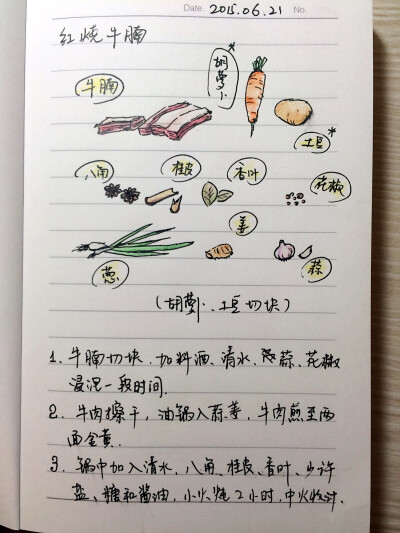 Date. 2015.06.21 No.
红烧牛腩
胡萝卜*
牛腩
土豆*
八角
桂皮
香叶
花椒
姜
葱
蒜
(胡萝卜、土豆切块)
1. 牛腩切块, 加料酒、清水、葱蒜、花椒
浸泥一段时间.
2. 牛肉擦干, 油锅入蒜姜, 牛肉煎至两
面金黄.
3. 锅中加入清水, 八角、桂皮、香叶、少许
盐、糖和酱油, 小火炖2小时, 中火收汁.